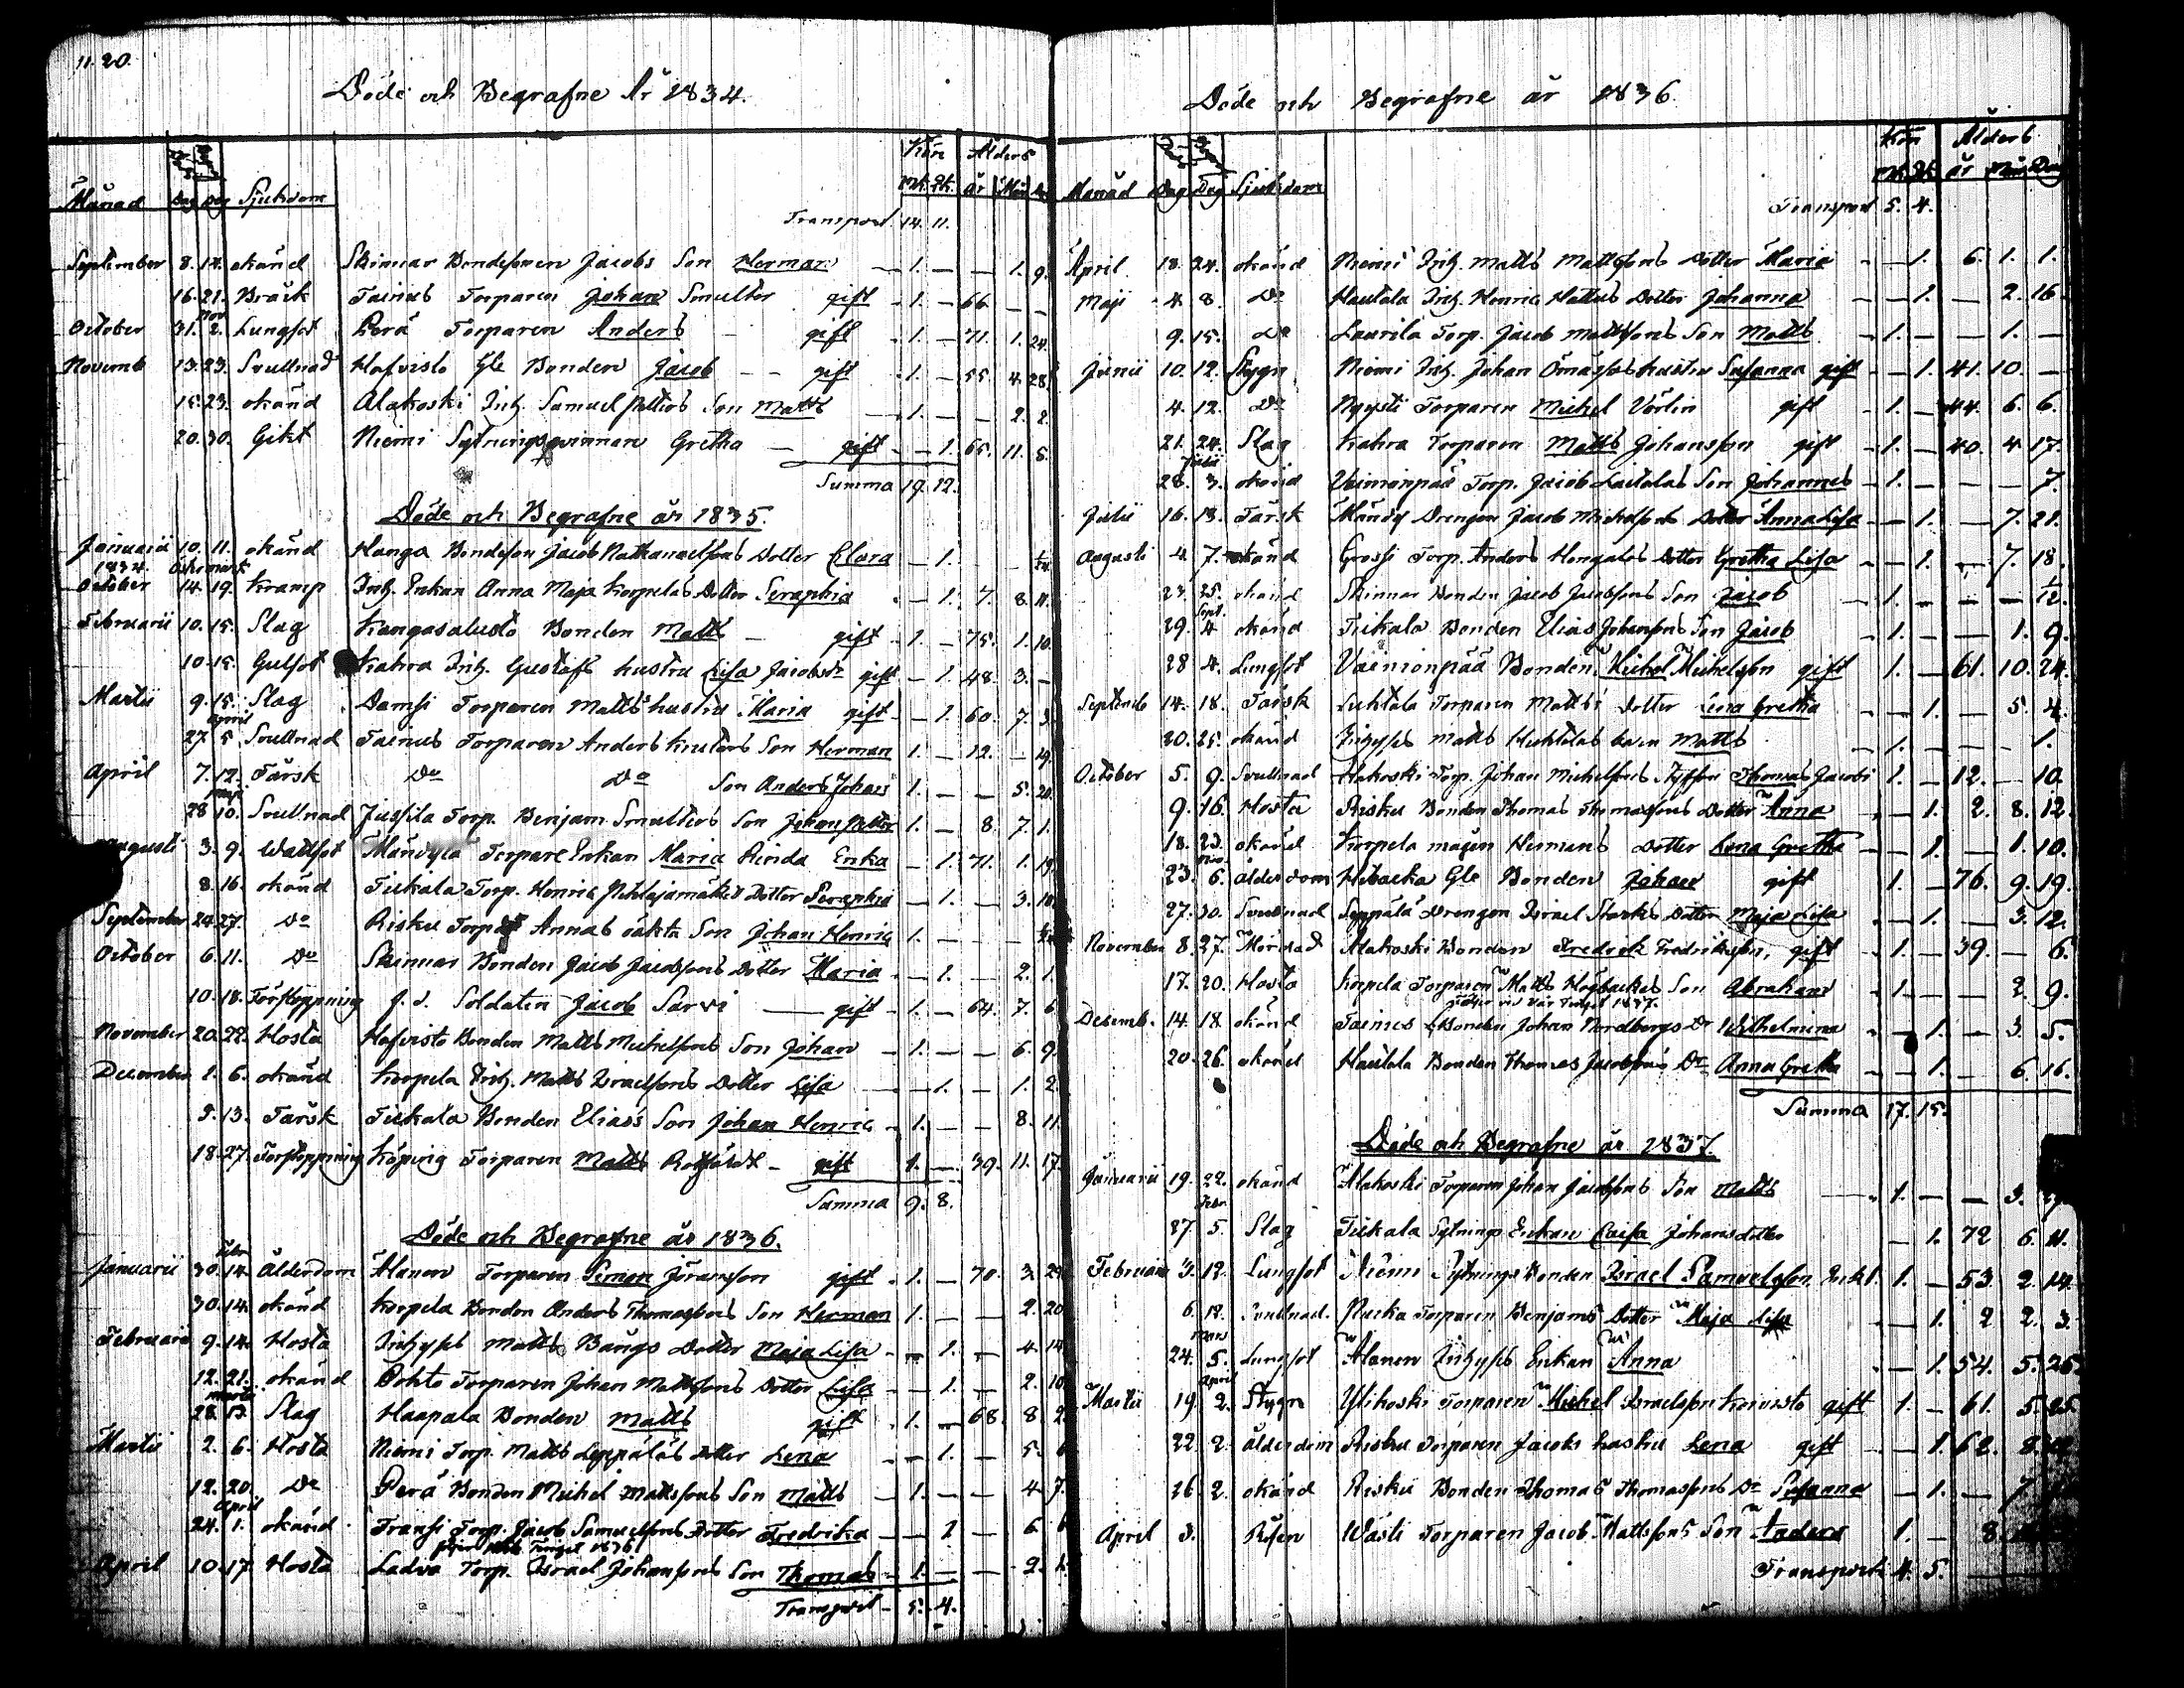 11. 20.
Döde och Begrafne År 1834.
Kön Ålders
Månad Dag Dag Sjukdom Mk. Qk. år Mån Dag
Transport 14. 11.
September 8. 14. okänd Skinnar Bondesonen Jacobs Son Herman — 1. — — 1. 9.
16. 21. Bråck Tainus Torparen Johan Smulter gift 1. — 66 — —
Nov
October 31. 2. Lungsot Perä Torparen Anders — gift 1. — 71. 1. 24.
Novemb 13. 23. Svullnad Hofvisto Gle Bonden Jacob — gift 1. — 55 4. 28.
15. 23. okänd Alakoski Inh. Samuel Petters Son Matts — 1. — — 2. 2.
20. 30. Gikt Niemi Sytningsqvinnan Gretha — gift — 1. 65. 11. 5.
Summa 19. 12.
Döde och Begrafne år 1835.
Januarii 10. 11. okänd Hanga Bondeson Jacob Nathanaelssons Dotter Clara — 1. — —
1834. Östermark
October 14. 19. Kramp Inh. Enkan Anna Maja Korpelas Dotter Seraphia — 1. 7. 8. 11.
Februarii 10. 15. Slag Kangasalusto Bonden Matts — gift 1. — 75. 1. 10.
10. 15. Gulsot Kahra Inh. Gustafs hustru Lisa Jacobsdr gift — 1. 48. 3. —
Martii 9. 15. Slag Damsi Torparen Matts hustru Maria gift — 1. 60. 7. 3.
April
27. 5. Svullnad Tainus Torparen Anders Knuters Son Herman 1. — 12. — 19.
April 7. 12. Tärsk Do Do Son Anders Johan 1. — — 5. 20.
Maji
28. 10. Svullnad Jussila Torp. Benjam. Smulters Son Johan Petter 1. — 8. 7. 1.
Augusti 3. 9. Wattsot Mändylä Torpare Enkan Maria Rinda Enka — 1. 71. 1. 19.
8. 16. okänd Tiukala Torp. Henric Pihlajamäkis Dotter Seraphia — 1. — 3. 18.
September 24. 27. Do Risku Annas oäkta Son Johan Henric 1. — — —
October 6. 11. Do Skinnar Bonden Jacob Jacobssons Dotter Maria — 1. — 2. 1.
10. 18. Förstoppning f. d. Soldaten Jacob Sarvi — gift 1. — 64. 7. 6
November 20. 22. Hosta Hofvisto Bonden Matts Michelssons Son Johan — 1. — — 6. 9.
December 1. 6. okänd Korpela Inh. Matts Israelssons Dotter Lisa — 1. — 1. 2.
9. 13. Tärsk Tiukala Bonden Elias's Son Johan Henric — 1. — — 8. 11.
18. 27. Förstoppning Köpvig Torparen Matts gift 1. — 39. 11. 17.
Summa 9. 8.
Döde och Begrafne år 1836.
Febr
Januarii 30. 14. Ålderdom Alanen Torparen Simon Göransson gift 1. — 70. 3. 29
30. 14. okänd Korpela Bonden Anders Thomassons Son Herman 1. — — 2. 20
Februarii 9. 14. Hosta Inhyses Matts Bångs Dotter Maja Lisa — 1. — 4. 14
12. 21. okänd Öchto Torparen Johan Mattssons Dotter Lisa — 1. — 2. 10
Martii
28. 13. Slag Haapala Bonden Matts gift 1. — 68. 8. 2.
Martii 2. 6. Hosta Niemi Torp. Matts Leppäläs Dotter Lena — 1. — 5. 6
12. 20. Do Perä Bonden Michel Mattssons Son Matts — 1. — — 4. 7.
April
24. 1. okänd Fransi Torp. Jacob Samuelssons Dotter Fredrika — 1 — 6. 6
Tinget 1836
April 10. 17. Hosta Ladva Torp. Israel Johanssons Son Thomas 1. — — 2.
Transport 5. 4.
Döde och Begrafne år 1836.
Kön Ålders
Månad Dag Dag Sjukdom Mk. Qk. år Mån Dag
Transport 5. 4.
April 18. 24. okänd Niemi Inh. Matts Mattssons Dotter Maria — 1. 6. 1. 1.
Maji 4. 8. Do Hautala Inh. Henric Dotter Johanna — 1. — 2. 16
9. 15. Do Laurila Torp. Jacob Mattssons Son Matts 1. — — 1. —
Junii 10. 12. Stygn Niemi Inh. Johan hustru Susanna gift — 1. 41. 10. —
4. 12. Do Torparen Michel gift 1. — 44. 6. 6.
21. 24. Slag Kahra Torparen Matts Johansson gift 1. — 40. 4. 17.
Julii
28. 3. okänd Vainionpää Torp. Jacob Laitalas Son Johannes 1. — — — 7.
Julii 16. 18. Tärsk Drengen Jacob Michelssons Dotter Anna Lisa — 1. — 7. 21.
Augusti 4. 7. okänd Grossi Torp. Anders Hongalas Dotter Gretha Lisa — 1. — 7. 18.
23. 25. okänd Skinnar Bonden Jacob Jacobssons Son Jacob 1. — — — 1/2.
Sept.
29. 4 okänd Tiukala Bonden Elias Johanssons Son Jacob 1. — — 1. 9.
28 4. Lungsot Vainionpää Bonden Michel Michelsson gift 1. — 61. 10. 24.
Septemb 14. 18. Tärsk Luhtala Torparen Matts's Dotter Lena Gretha — 1. — 5. 4.
20. 25. okänd Inhyses Matts Huhtalas barn Matts 1. — — — 1.
October 5. 9. Svullnad Alakoski Torp. Johan Michelssons Styfson Thomas Jacobs 1. — 12. — 10.
9. 16. Hosta Risku Bonden Thomas Thomassons Dotter Anna — 1. 2. 8. 12.
18. 23. okänd Korpela mågen Hermans Dotter Lena Gretha — 1. — 1. 10.
Nov
23. 6. ålderdom Hibacka Gle Bonden Johan gift 1. — 76. 9. 19.
27. 30. Svullnad Seppälä Drengen Israel Starks Dotter Maja Lisa — 1. — 3. 12.
November 8. 27. Mördad Alakoski Bonden Fredrick Fredriksson, gift 1. — 39. — 6.
17. 20. Hosta Korpela Torparen Matts Högbackas Son Abraham 1. — — 2. 9.
vid Tinget 1837.
Decemb. 14. 18. okänd Tainus Bonden Johan Nordbergs Dr Wilhelmina — 1. — 3. 5.
20. 26. okänd Hautala Bonden Thomas Jacobssons Dr Anna Gretha — 1. — 6. 16.
Summa 17. 15.
Döde och Begrafne år 1837.
Januarii 19. 22. okänd Alakoski Torparen Johan Jacobssons Son Matts 1. — — 3.
Febr
27. 5. Slag Tiukala Sytnings Enkan Caisa Johansdotter — 1. 72 6. 11.
Februarii 3. 12. Lungsot Niemi Sytnings Bonden Israel Samuelsson Enkl. 1. — 53. 2. 14.
6. 12. Svullnad. Ruska Torparen Benjams Dotter Maja Lisa — 1. 2 2. 3.
Mars
24. 5. Lungsot Alanen Inhyses Enkan Anna — 1. 54. 5. 25.
April
Martii 19. 2. Stygn Ylikoski Torparen Michel Israelsson Koivisto gift 1. — 61. 5. 25.
22. 2. ålderdom Risku Torparen Jacobs hustru Lena gift — 1. 62. 8.
26. 2. okänd Risku Bonden Thomas Thomassons Dr Susanna — 1. — 7
April 3. Rosen Wästi Torparen Jacob Mattssons Son Anders 1. — 8.
Transport 4. 5.